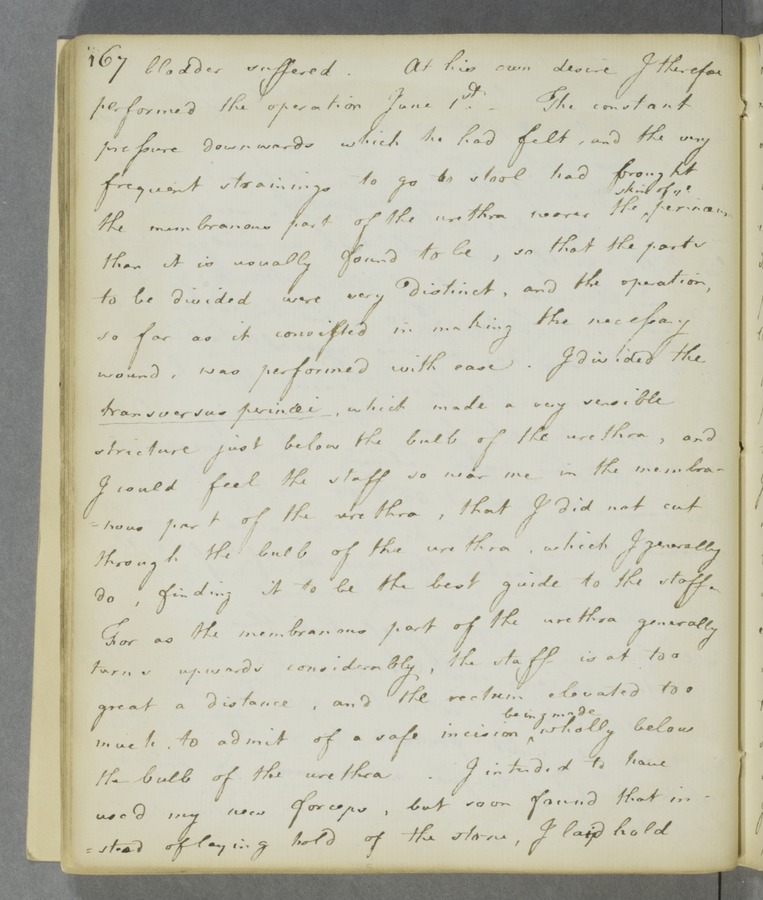 167 bladder suffered. At his own desire I therefore
performed the operation June 1st. – The constant
pressure downwards which he had felt, and the very
frequent strainings to go to stool had brought
skin of ye
the membranous part of the urethra nearer the ‸ perinæum
than it is usually found to be, so that the parts
to be divided were very distinct, and the operation,
so far as it consisted in making the necessary
wound, was performed with ease. I divided the
transversus perinæi, which made a very sensible
stricture just below the bulb of the urethra, and
I could feel the staff so near me in the membra-
=nous part of the urethra, that I did not cut
through the bulb of the urethra, which I generally
do, finding it to be the best guide to the staff.
For as the membranous part of the urethra generally
turns upwards considerably, the staff is at too
great a distance, and the rectum elevated too
being made
much, to admit of a safe incision ‸ wholly below
the bulb of the urethra. I intended to have
used my new forceps, but soon found that in-
=stead of laying hold of the stone, I laid hold